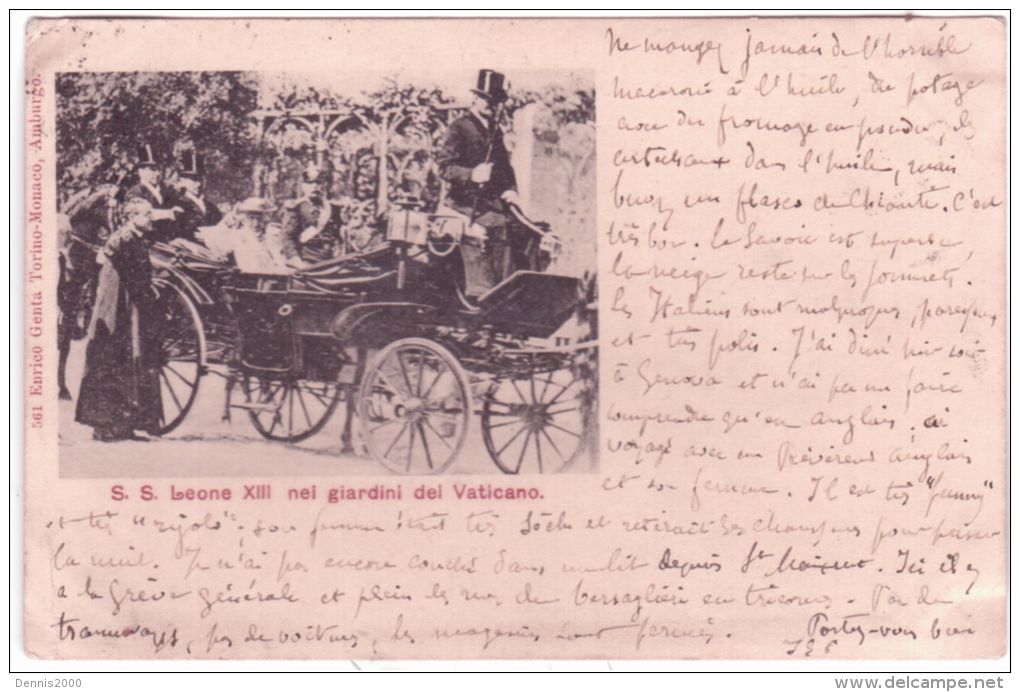 Ne mangez jamais de l'horrible
macaroni à l'huile, du potage
avec du fromage en poudre, des
artichaux dans l'huile, mais
buvez un flasco de Chianti. C'est
très bon. La Savoie est superbe,
la neige reste sur les sommets.
Les Italiens sont malpropres, paresseux
et très polis. J'ai diné hier soir
à Genova et n'ai pu me faire
comprendre qu'en anglais. ai
voyagé avec un Révérend Anglais
et sa femme. Il est très "funny"
et très "rigolo", sa femme était très sèche et retirait ses chaussures pour passer
la nuit. Je n'ai pas encore couché dans un lit depuis St Maixent. Ici il y
a la Grève générale et plein les rues de bersaglieri en tricornes. Pas de
tramways, pas de voitures, les magasins sont fermés. Portez-vous bien
561 Enrico Genta Torino-Monaco, Amburgo.
S. S. Leone XIII nei giardini del Vaticano.
Dennis2000
www.delcampe.net